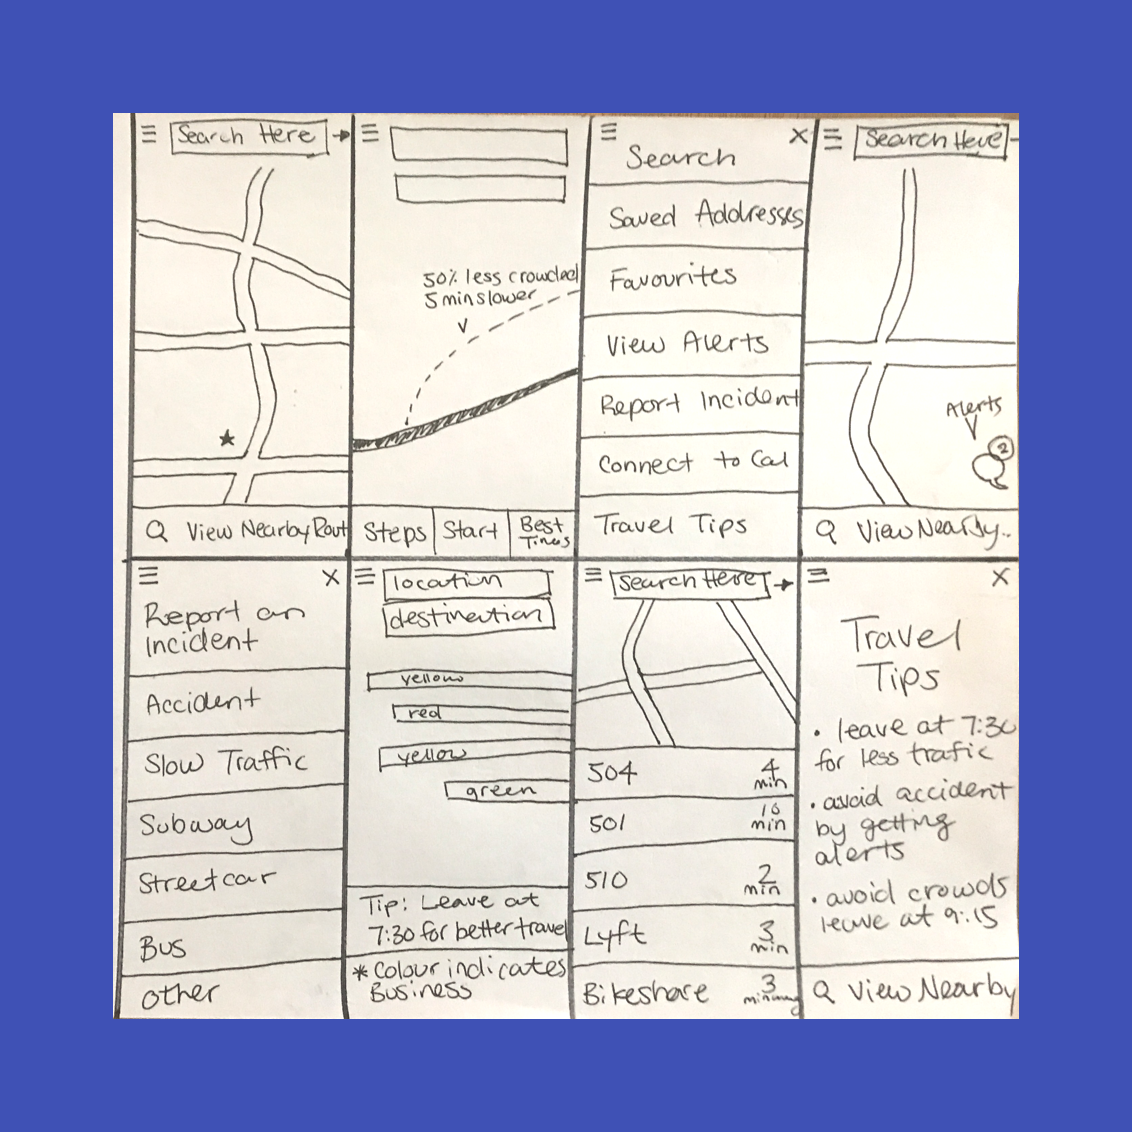 Search Here
Q View Nearby Rout
50% less crowded
5 min slower
Steps
Start
Best
Times
Search
Saved Addresses
Favourites
View Alerts
Report Incident
Connect to Cal
Travel Tips
Search Here
Alerts
2
Q View Nearby..
Report an
Incident
Accident
Slow Traffic
Subway
Streetcar
Bus
other
location
destination
yellow
red
yellow
green
Tip: Leave at
7:30 for better travel
* Colour indicates
Business
Search Here
504 4
min
501
min
510 2
min
Lyft 3
min
Bikeshare 3
Travel
Tips
• leave at 7:30
for less trafic
• avoid accident
by getting
alerts
• avoid crowds
leave at 9:15
Q View Nearby